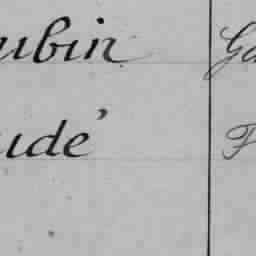 ubin Ga
udé F